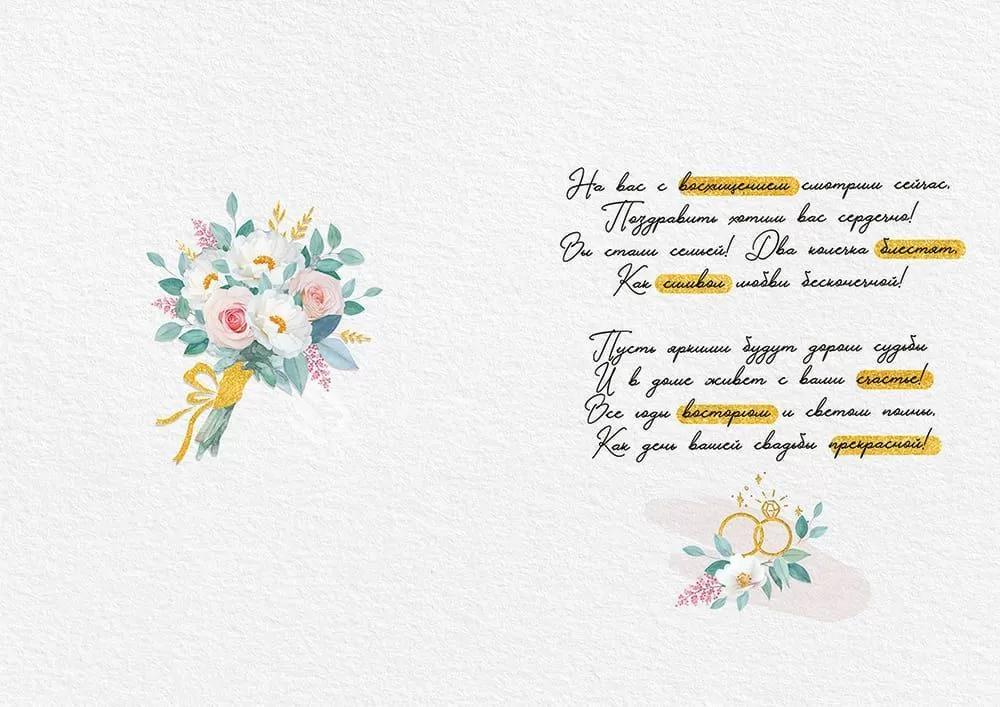 На вас с восхищением смотрим сейчас,
Поздравить хотим вас сердечно!
Вы стали семьей! Два колечка блестят,
Как символ любви бесконечной!
Пусть яркими будут дороги судьбы
И в доме живет с вами счастье!
Все годы восторгом и светом полны,
Как день вашей свадьбы прекрасной!